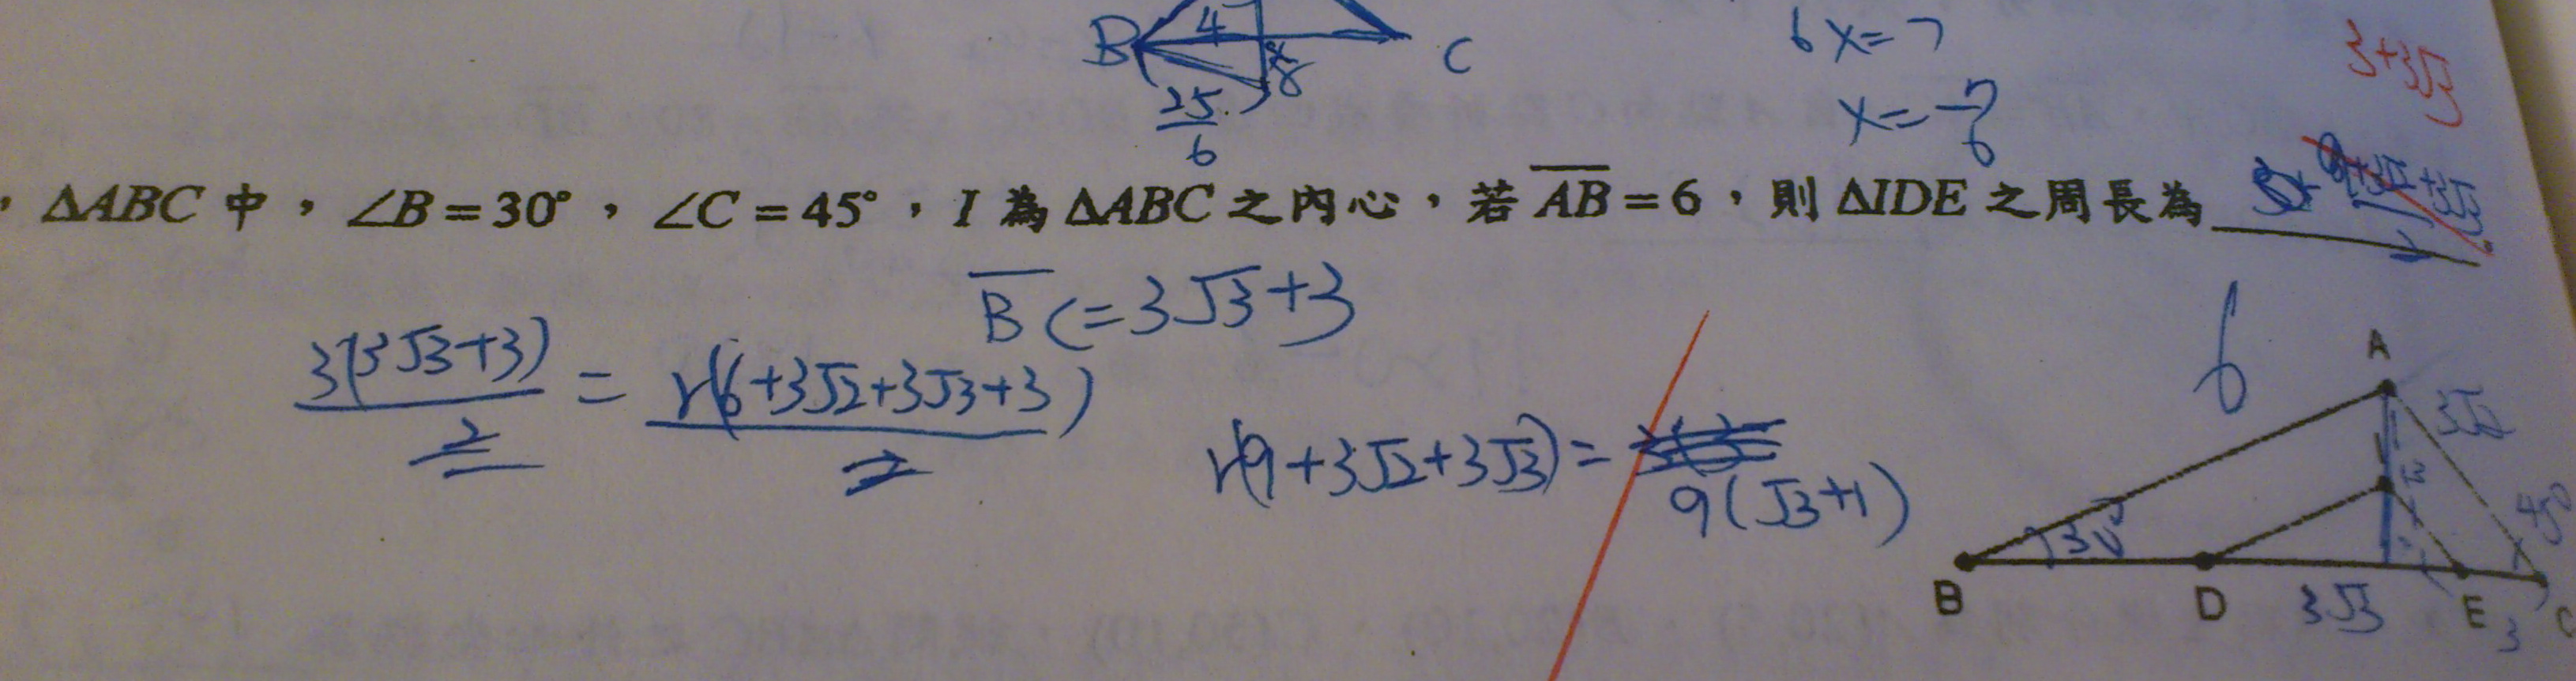 B 4 x C
25/6
6x=7
x=7/6
3+3√3
，ΔABC 中，∠B=30°，∠C=45°，I 為 ΔABC 之內心，若 AB=6，則 ΔIDE 之周長為
BC=3√3+3
3(3√3+3)/2 = r(6+3√2+3√3+3)/2
r(9+3√2+3√3)=
9(√3+1)
6
A
3√2
I
30° 45°
B D E C
3√3 3